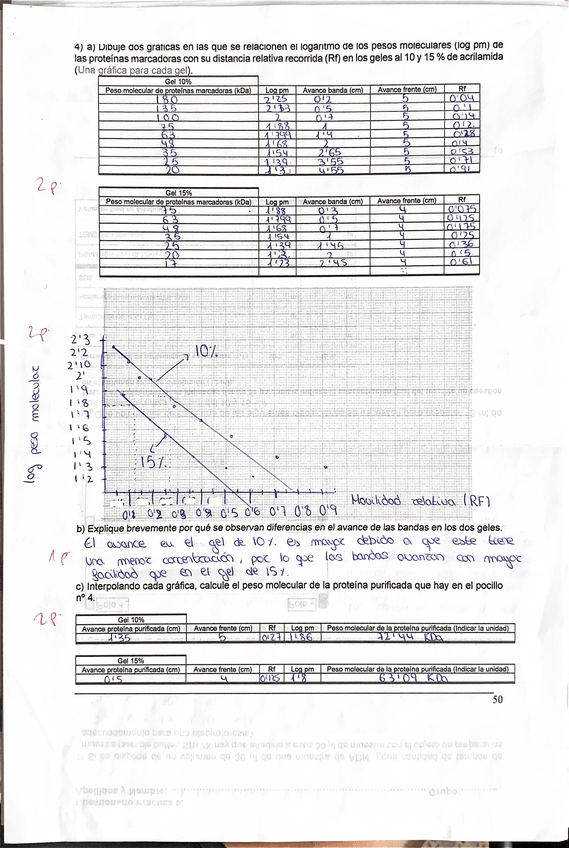 4) a) Dibuje dos gráficas en las que se relacionen el logaritmo de los pesos moleculares (log pm) de
las proteínas marcadoras con su distancia relativa recorrida (Rf) en los geles al 10 y 15 % de acrilamida
(Una gráfica para cada gel).
Gel 10%
Peso molecular de proteínas marcadoras (kDa) Log pm Avance banda (cm) Avance frente (cm) Rf
180 2'25 0'2 5 0'04
135 2'13 0'5 5 0'1
100 2 0'7 5 0'14
75 1'88 1 5 0'2
63 1'799 1'4 5 0'28
48 1'68 2 5 0'4
35 1'54 2'65 5 0'53
25 1'39 3'55 5 0'71
20 1'3 4'55 5 0'91
2p.
Gel 15%
Peso molecular de proteínas marcadoras (kDa) Log pm Avance banda (cm) Avance frente (cm) Rf
75 1'88 0'3 4 0'075
63 1'799 0'5 4 0'125
48 1'68 0'7 4 0'175
35 1'54 1 4 0'25
25 1'39 1'45 4 0'36
20 1'3 2 4 0'5
17 1'23 2'45 4 0'61
2p.
log peso molecular
2'3
2'2
2'10
2'
1'9
1'8
1'7
1'6
1'5
1'4
1'3
1'2
10%
15%
0'1 0'2 0'3 0'4 0'5 0'6 0'7 0'8 0'9
Movilidad relativa (RF)
b) Explique brevemente por qué se observan diferencias en el avance de las bandas en los dos geles.
El avance en el gel de 10% es mayor debido a que este tiene
1p una menor concentración, por lo que las bandas avanzan con mayor
facilidad que en el gel de 15%.
c) Interpolando cada gráfica, calcule el peso molecular de la proteína purificada que hay en el pocillo
nº 4.
2p.
Gel 10%
Avance proteína purificada (cm) Avance frente (cm) Rf Log pm Peso molecular de la proteína purificada (Indicar la unidad)
1'35 5 0'27 1'86 72'44 KDa
Gel 15%
Avance proteína purificada (cm) Avance frente (cm) Rf Log pm Peso molecular de la proteína purificada (Indicar la unidad)
0'5 4 0'125 1'8 63'09 KDa
50